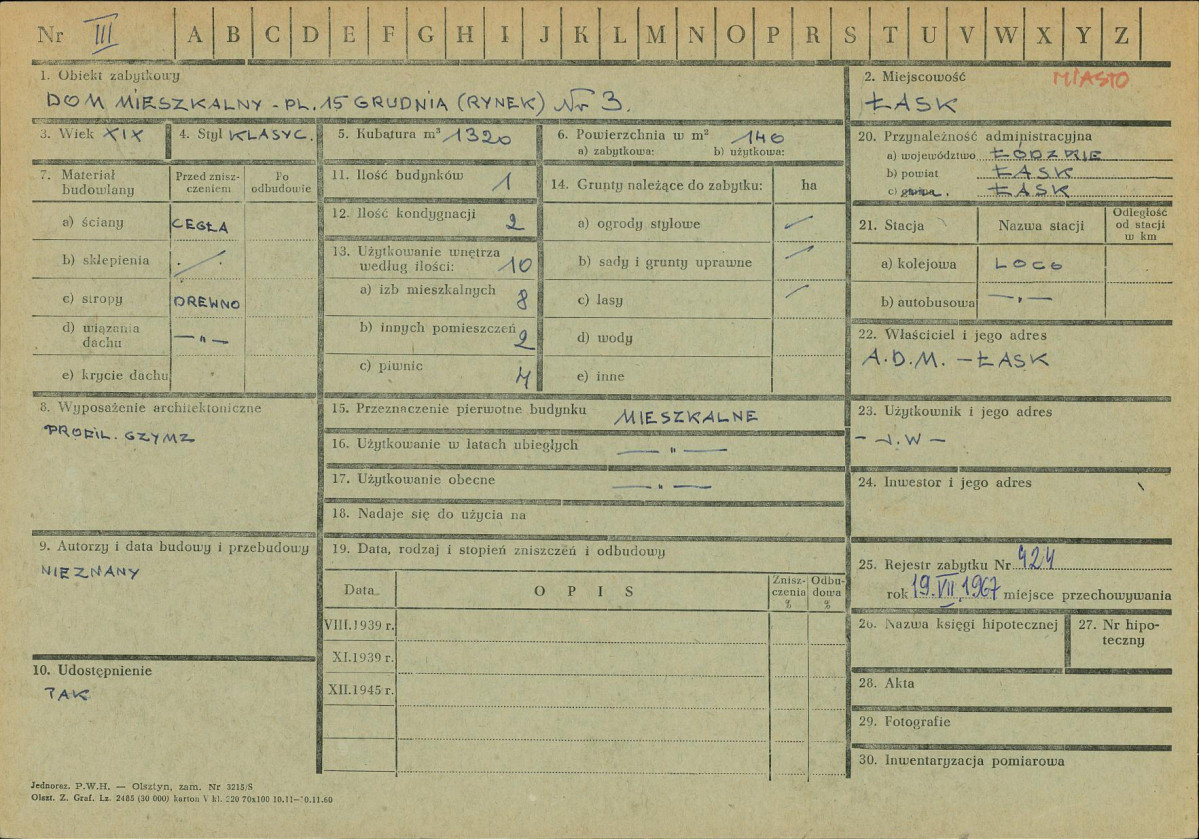 Nr III A B C D E F G H I J K L M N O P R S T U V W X Y Z
1. Obiekt zabytkowy
DOM MIESZKALNY - PL. 15 GRUDNIA (RYNEK) Nr 3.
2. Miejscowość MIASTO
ŁASK
3. Wiek XIX
4. Styl KLASYC.
5. Kubatura m³ 1320
6. Powierzchnia w m² 140
a) zabytkowa: b) użytkowa:
7. Materiał budowlany
Przed znisz-
czeniem
Po
odbudowie
a) ściany CEGŁA
b) sklepienia
c) stropy DREWNO
d) wiązania
dachu — „ —
e) krycie dachu
8. Wyposażenie architektoniczne
PROFIL. GZYMZ
9. Autorzy i data budowy i przebudowy
NIEZNANY
10. Udostępnienie
TAK
11. Ilość budynków 1
12. Ilość kondygnacji 2
13. Użytkowanie wnętrza
według ilości: 10
a) izb mieszkalnych 8
b) innych pomieszczeń 2
c) piwnic 4
14. Grunty należące do zabytku: ha
a) ogrody stylowe
b) sady i grunty uprawne
c) lasy
d) wody
e) inne
15. Przeznaczenie pierwotne budynku MIESZKALNE
16. Użytkowanie w latach ubiegłych — „ —
17. Użytkowanie obecne — „ —
18. Nadaje się do użycia na
19. Data, rodzaj i stopień zniszczeń i odbudowy
Data OPIS
Znisz-
czenia
%
Odbu-
dowa
%
VIII.1939 r.
XI.1939 r.
XII.1945 r.
20. Przynależność administracyjna
a) województwo ŁÓDZKIE
b) powiat ŁASK
c) ŁASK
21. Stacja Nazwa stacji
Odległość
od stacji
w km
a) kolejowa LOCO
b) autobusowa — „ —
22. Właściciel i jego adres
A.D.M. - ŁASK
23. Użytkownik i jego adres
- J.W -
24. Inwestor i jego adres
25. Rejestr zabytku Nr 424
rok 19.VII.1967 miejsce przechowywania
26. Nazwa księgi hipotecznej
27. Nr hipo-
teczny
28. Akta
29. Fotografie
30. Inwentaryzacja pomiarowa
Jednoraz. P.W.H. — Olsztyn, zam. Nr 3215/S
Olszt. Z. Graf. Lz. 2485 (30 000) karton V kl. 220 70x100 10.11—10.11.60